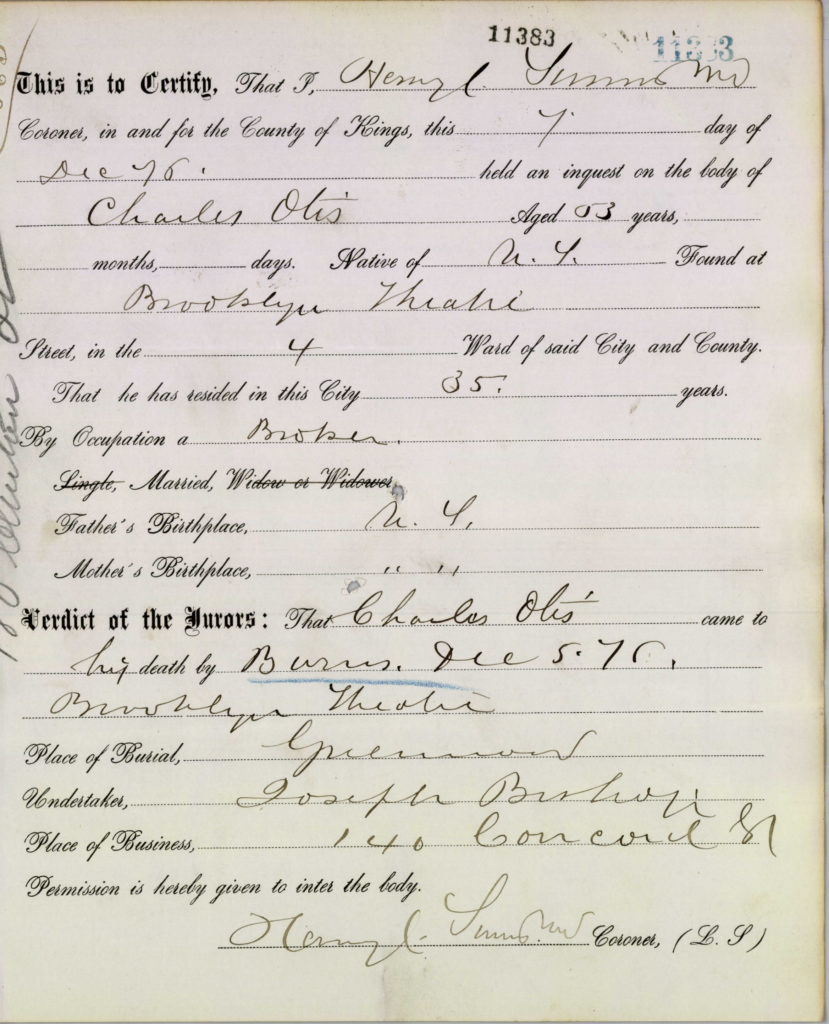 11383
This is to Certify, That I, Henry C. Simms MD
Coroner, in and for the County of Kings, this 7 day of
Dec 76. held an inquest on the body of
Charles Otis Aged 53 years,
months, days. Native of N. Y. Found at
Brooklyn Theatre
Street, in the 4 Ward of said City and County.
That he has resided in this City 35. years.
By Occupation a Broker.
Single, Married, Widow or Widower,
Father's Birthplace, N. Y.
Mother's Birthplace, " "
Verdict of the Jurors: That Charles Otis came to
his death by Burns. Dec 5. 76.
Brooklyn Theatre
Place of Burial, Greenwood
Undertaker, Joseph Bishop
Place of Business, 140 Concord St
Permission is hereby given to inter the body.
Henry C. Simms MD Coroner, (L. S)